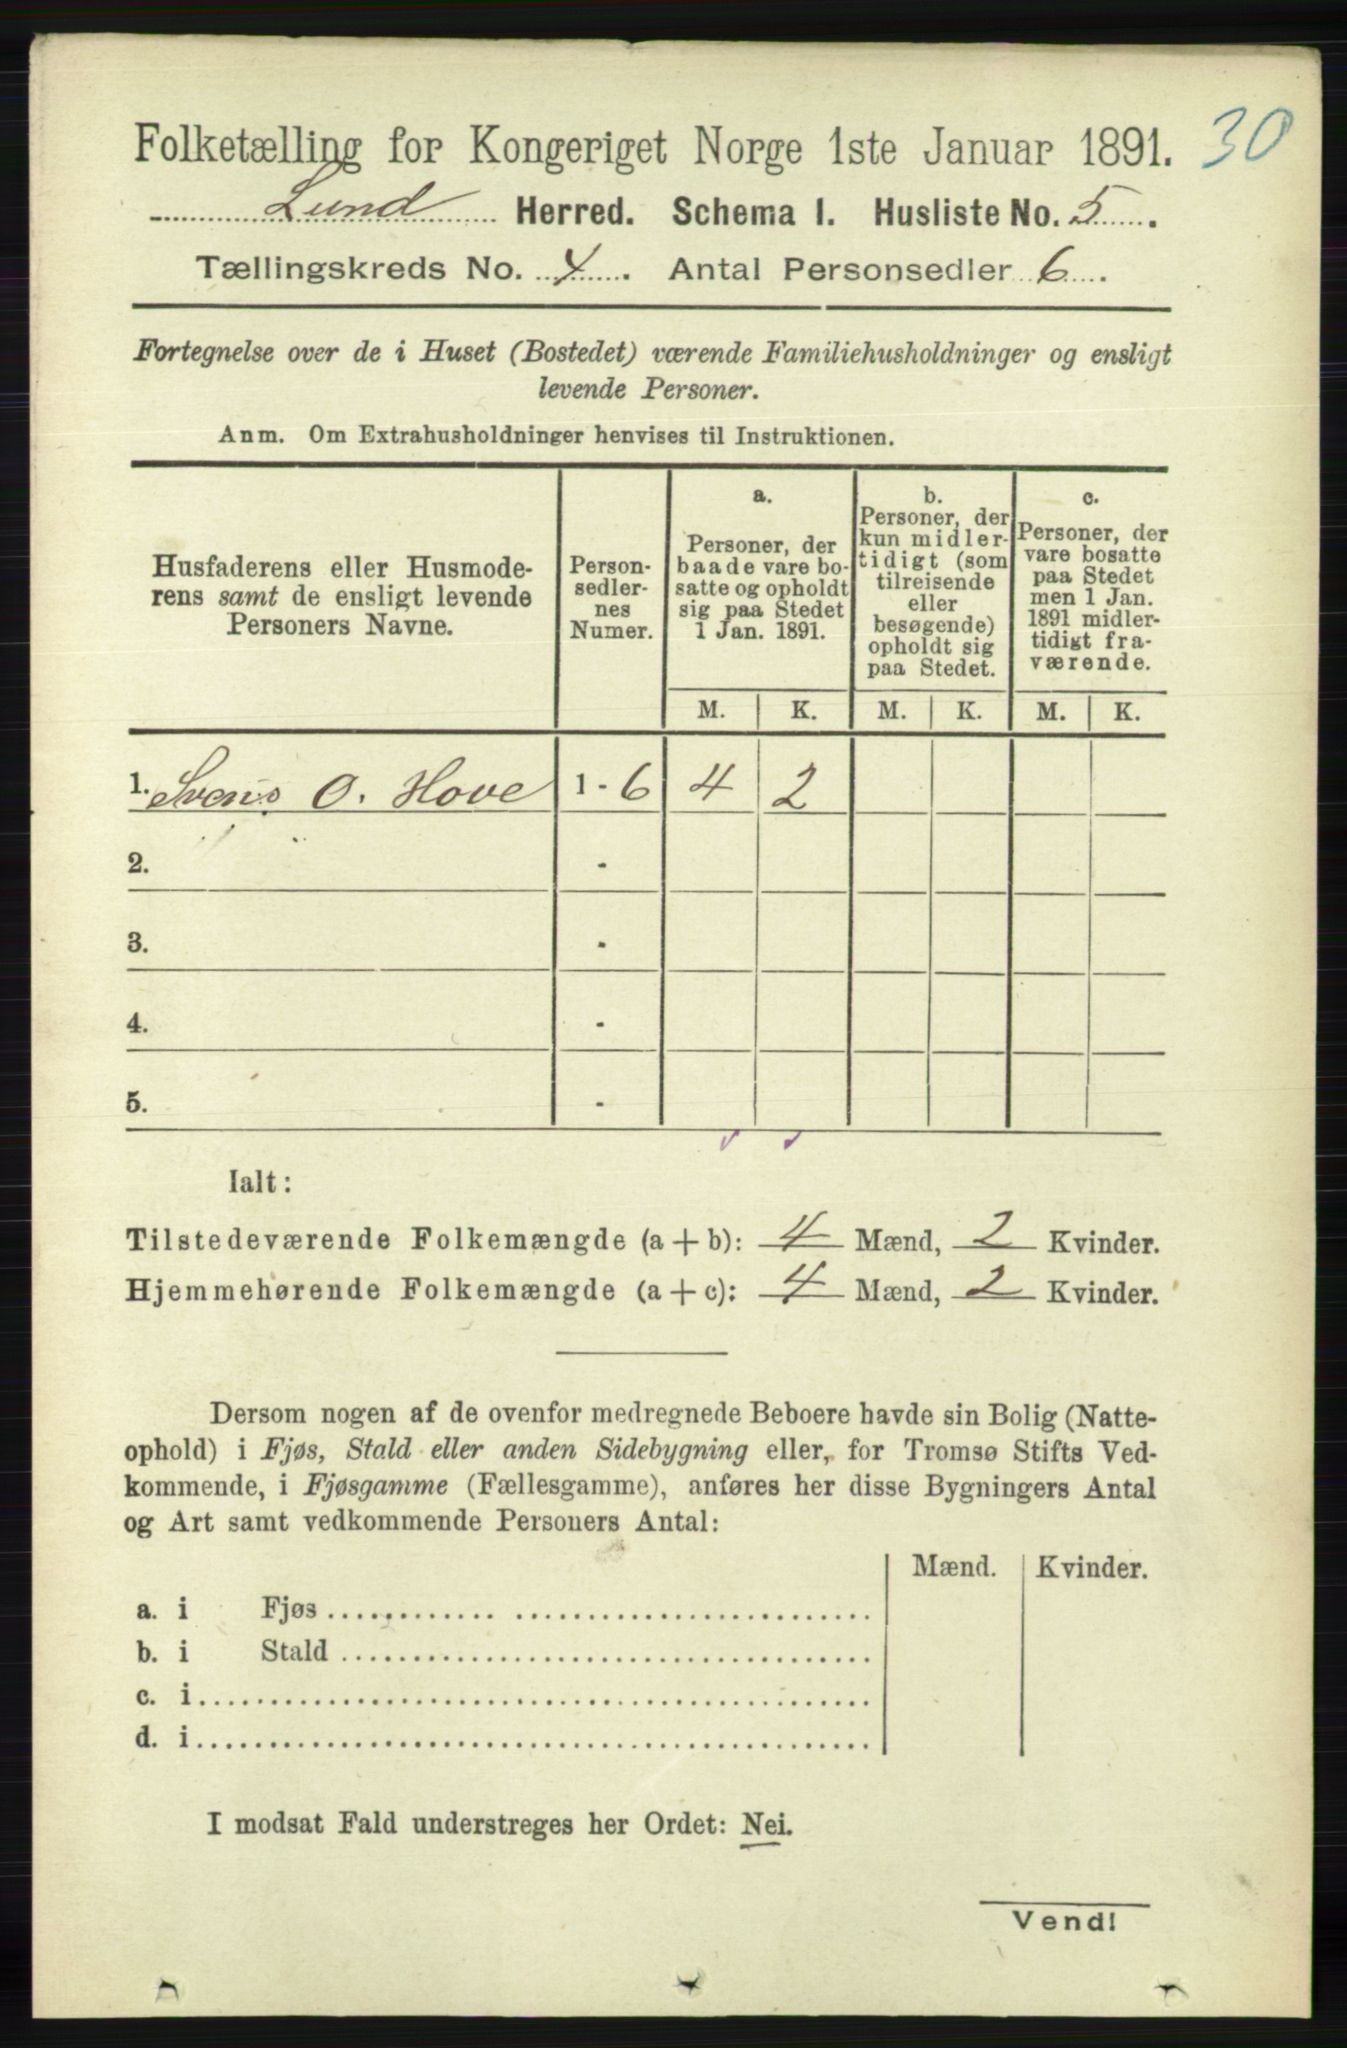 30
Folketælling for Kongeriget Norge 1ste Januar 1891.
Lund Herred. Schema I. Husliste No. 5.
Tællingskreds No. 4. Antal Personsedler 6.
Fortegnelse over de i Huset (Bostedet) værende Familiehusholdninger og ensligt
levende Personer.
Anm. Om Extrahusholdninger henvises til Instruktionen.
Husfaderens eller Husmode-
rens samt de ensligt levende
Personers Navne.
Person-
sedler-
nes
Numer.
a.
Personer, der
baade vare bo-
satte og opholdt
sig paa Stedet
1 Jan. 1891.
b.
Personer, der
kun midler-
tidigt (som
tilreisende
eller
besøgende)
opholdt sig
paa Stedet.
c.
Personer, der
vare bosatte
paa Stedet
men 1 Jan.
1891 midler-
tidigt fra-
værende.
M. K. M. K. M. K.
1. O. Hove 1 - 6 4 2
2. -
3. -
4. -
5. -
Ialt:
Tilstedeværende Folkemængde (a + b): 4 Mænd, 2 Kvinder.
Hjemmehørende Folkemængde (a + c): 4 Mænd, 2 Kvinder.
Dersom nogen af de ovenfor medregnede Beboere havde sin Bolig (Natte-
ophold) i Fjøs, Stald eller anden Sidebygning eller, for Tromsø Stifts Ved-
kommende, i Fjøsgamme (Fællesgamme), anføres her disse Bygningers Antal
og Art samt vedkommende Personers Antal:
Mænd. Kvinder.
a. i Fjøs
b. i Stald
c. i
d. i
I modsat Fald understreges her Ordet: Nei.
Vend!